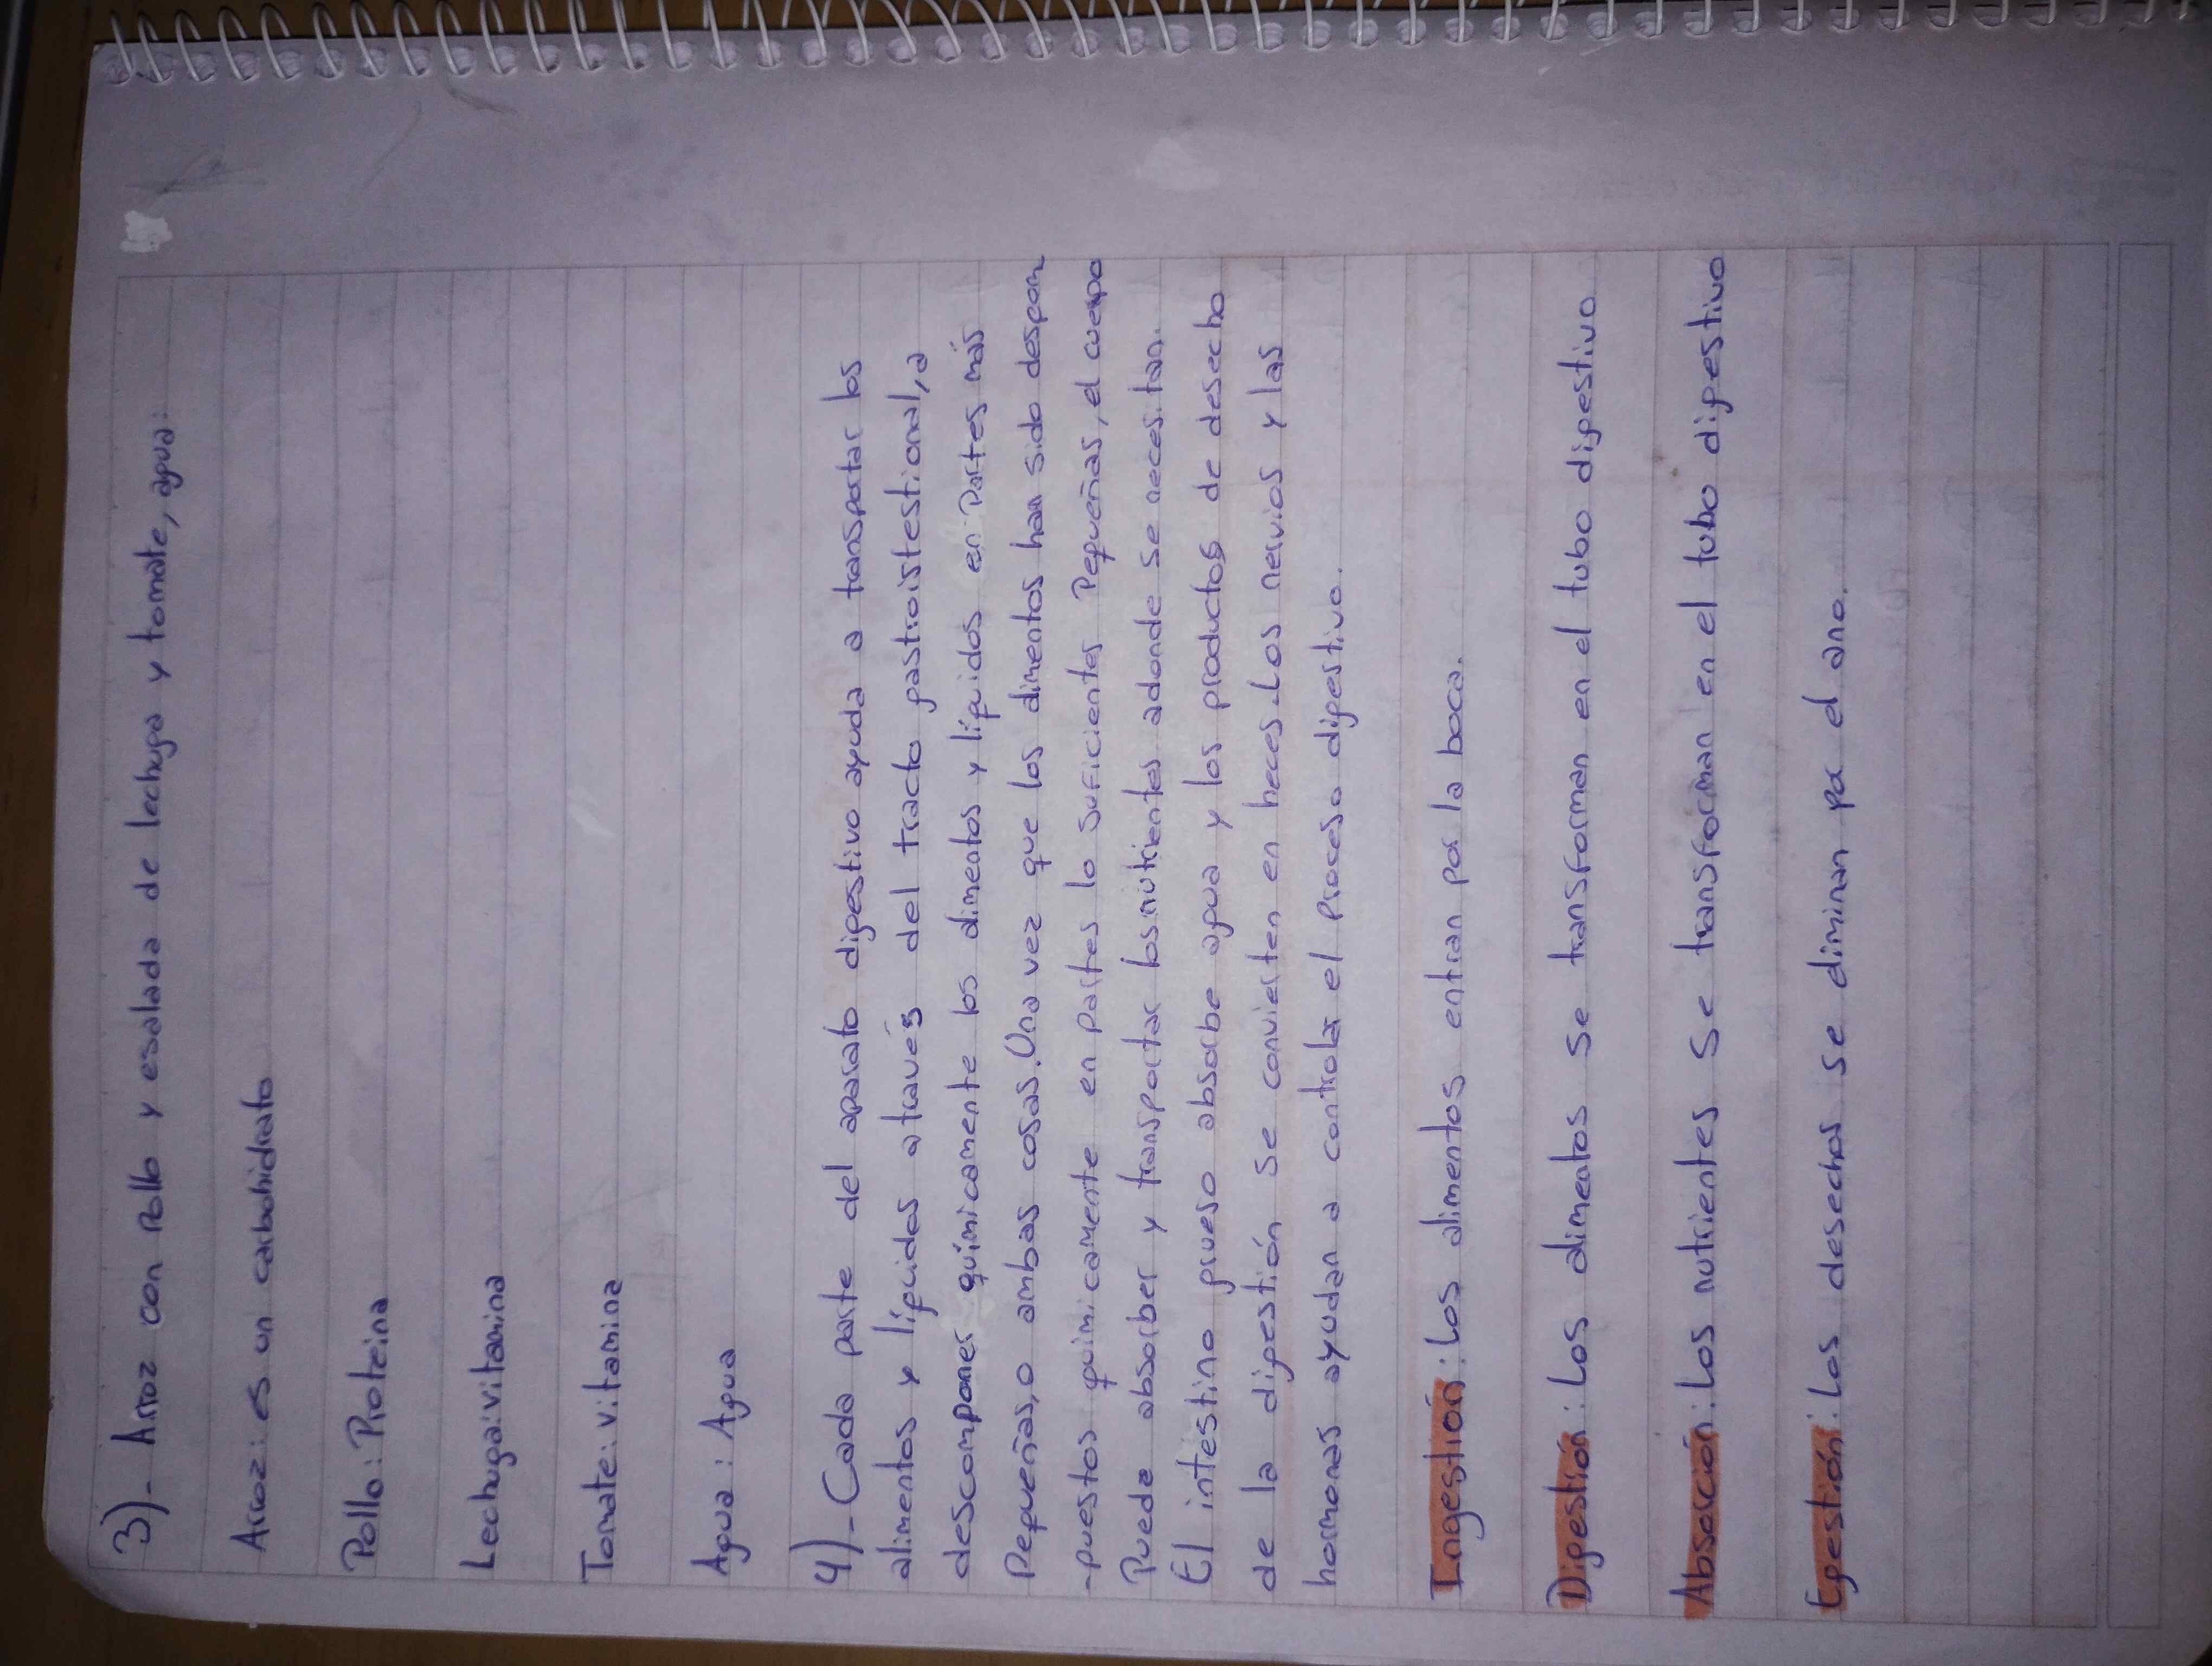 3)- Arroz con Pollo y esalada de lechuga y tomate, agua:
Arroz: es un carbohidrato
Pollo: Proteina
Lechuga: vitamina
Tomate: vitamina
Agua: Agua
4)- Cada parte del aparato digestivo ayuda a transportar los
alimentos y líquidos através del tracto gastroistestional, a
descomponer químicamente los alimentos y líquidos en Partes más
Pequeñas, o ambas cosas. Una vez que los alimentos han sido despom
-puestos químicamente en partes lo suficientes Pequeñas, el cuerpo
Puede absorber y transportar los nutrientes adonde se necesitan.
El intestino grueso absorbe agua y los productos de desecho
de la digestión se convierten en heces. Los nervios y las
hormonas ayudan a controlar el Proceso digestivo.
Ingestión: Los alimentos entran por la boca.
Digestión: Los alimentos se transforman en el tubo digestivo
Absorción: Los nutrientes Se transforman en el tubo digestivo
Egestión: Los desechos se eliminan por el ano.